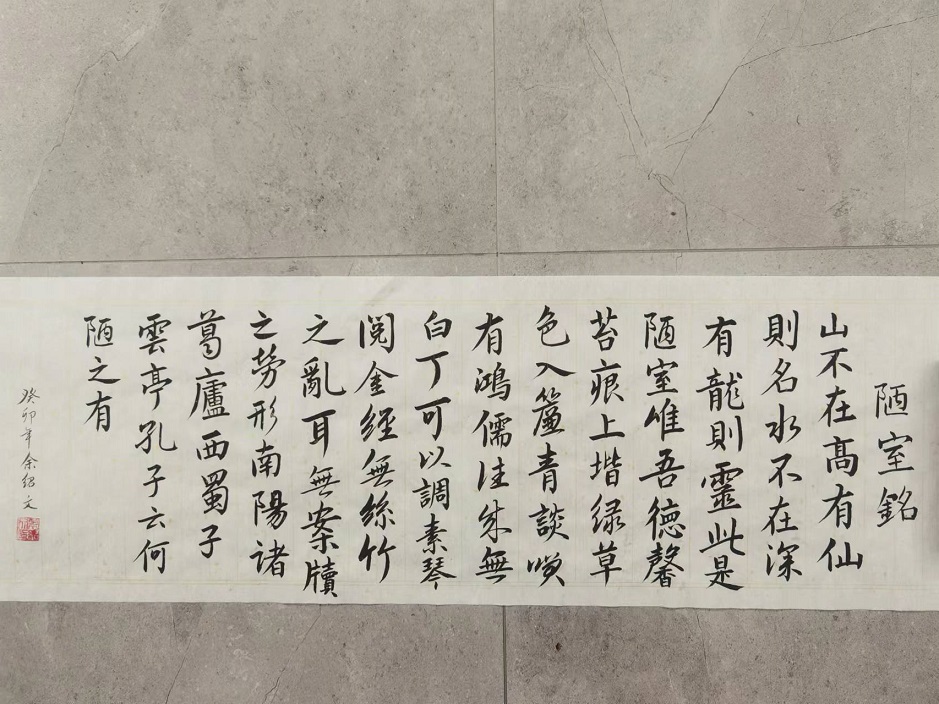 陋室銘
山不在髙有仙
則名水不在深
有龍則靈此是
陋室唯吾德馨
苔痕上堦绿草
色入簾青談咲
有鴻儒往来無
白丁可以調素琴
閲金經無絲竹
之亂耳無案牘
之勞形南陽諸
葛廬西蜀子
雲亭孔子云何
陋之有
癸卯年余绍文